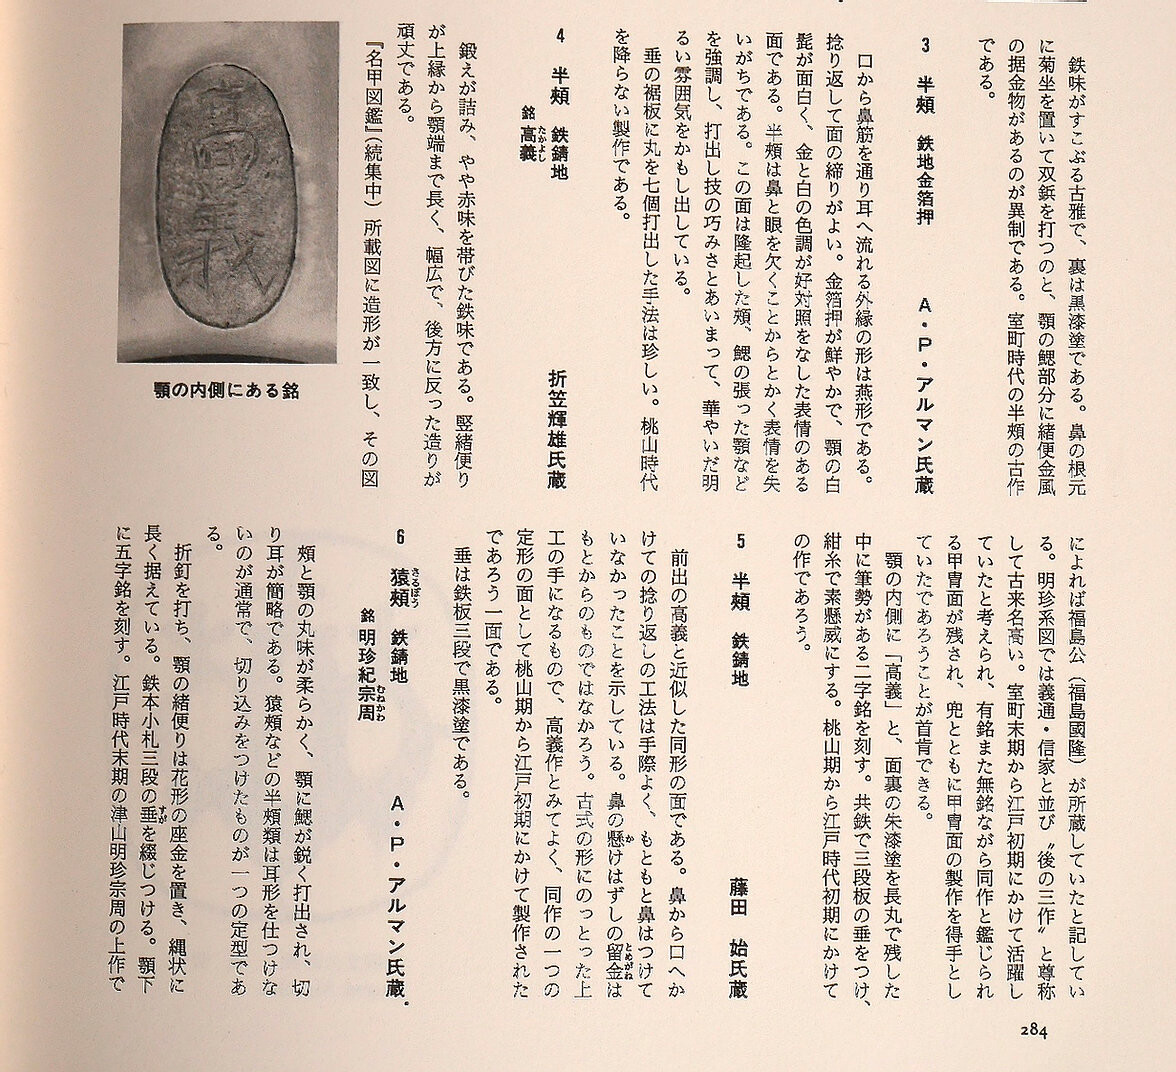 鉄味がすこぶる古雅で、裏は黒漆塗である。鼻の根元
に菊坐を置いて双鋲を打つのと、顎の鰓部分に緒便金風
の据金物があるのが異制である。室町時代の半頰の古作
である。
3 半頰 鉄地金箔押 A・P・アルマン氏蔵
口から鼻筋を通り耳へ流れる外縁の形は燕形である。
捻り返して面の締りがよい。金箔押が鮮やかで、顎の白
髭が面白く、金と白の色調が好対照をなした表情のある
面である。半頰は鼻と眼を欠くことからとかく表情を失
いがちである。この面は隆起した頰、鰓の張った顎など
を強調し、打出し技の巧みさとあいまって、華やいだ明
るい雰囲気をかもし出している。
垂の裾板に丸を七個打出した手法は珍しい。桃山時代
を降らない製作である。
4 半頰 鉄錆地 折笠輝雄氏蔵
銘 高義
たかよし
鍛えが詰み、やや赤味を帯びた鉄味である。竪緒便り
が上縁から顎端まで長く、幅広で、後方に反った造りが
頑丈である。
『名甲図鑑』(続集中)所載図に造形が一致し、その図
高義
顎の内側にある銘
によれば福島公(福島國隆)が所蔵していたと記してい
る。明珍系図では義通・信家と並び〝後の三作〟と尊称
して古来名高い。室町末期から江戸初期にかけて活躍し
ていたと考えられ、有銘また無銘ながら同作と鑑じられ
る甲冑面が残され、兜とともに甲冑面の製作を得手とし
ていたであろうことが首肯できる。
顎の内側に「高義」と、面裏の朱漆塗を長丸で残した
中に筆勢がある二字銘を刻す。共鉄で三段板の垂をつけ、
紺糸で素懸威にする。桃山期から江戸時代初期にかけて
の作であろう。
5 半頰 鉄錆地 藤田 始氏蔵
前出の高義と近似した同形の面である。鼻から口へか
けての捻り返しの工法は手際よく、もともと鼻はつけて
いなかったことを示している。鼻の懸けはずしの留金は
か
とめがね
もとからのものではなかろう。古式の形にのっとった上
工の手になるもので、高義作とみてよく、同作の一つの
定形の面として桃山期から江戸初期にかけて製作された
であろう一面である。
垂は鉄板三段で黒漆塗である。
6 猿頰 鉄錆地 A・P・アルマン氏蔵
さるぼう
銘 明珍紀宗周
むねかね
頰と顎の丸味が柔らかく、顎に鰓が鋭く打出され、切
り耳が簡略である。猿頰などの半頰類は耳形を仕つけな
いのが通常で、切り込みをつけたものが一つの定型であ
る。
折釘を打ち、顎の緒便りは花形の座金を置き、縄状に
長く据えている。鉄本小札三段の垂を綴じつける。顎下
すが
に五字銘を刻す。江戸時代末期の津山明珍宗周の上作で
284